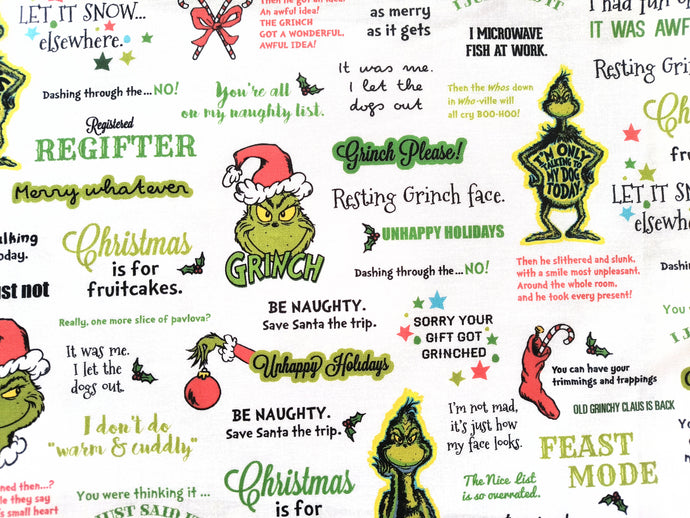 LET IT SNOW...
elsewhere.
An awful idea!
THE GRINCH
GOT A WONDERFUL,
AWFUL IDEA!
as merry
as it gets
I MICROWAVE
FISH AT WORK.
I had fun
IT WAS AWF
Dashing through the...NO!
You're all
on my naughty list.
It was me.
I let the
dogs out
Then the Whos down
in Who-ville will
all cry BOO-HOO!
Resting Grinch
Registered
REGIFTER
Merry whatever
Grinch Please!
Resting Grinch face.
UNHAPPY HOLIDAYS
I'M ONLY
TALKING TO
MY DOG
TODAY.
Christmas
is for
fruitcakes.
GRINCH
LET IT SNOW
elsewhere
talking
today.
just not
Dashing through the...NO!
Then he slithered and slunk,
with a smile most unpleasant,
Around the whole room,
and he took every present!
Dashing through the
Really, one more slice of pavlova?
BE NAUGHTY.
Save Santa the trip.
SORRY YOUR
GIFT GOT
GRINCHED
It was me.
I let the
dogs out.
Unhappy Holidays
You can have your
trimmings and trappings
OLD GRINCHY CLAUS IS BACK
I don't do
"warm & cuddly"
BE NAUGHTY.
Save Santa the trip.
I'm not mad,
it's just how
my face looks.
FEAST
MODE
You were thinking it ...
I JUST SAID IT
Christmas
is for
The Nice List
is so overrated.
then...?
they say
small heart